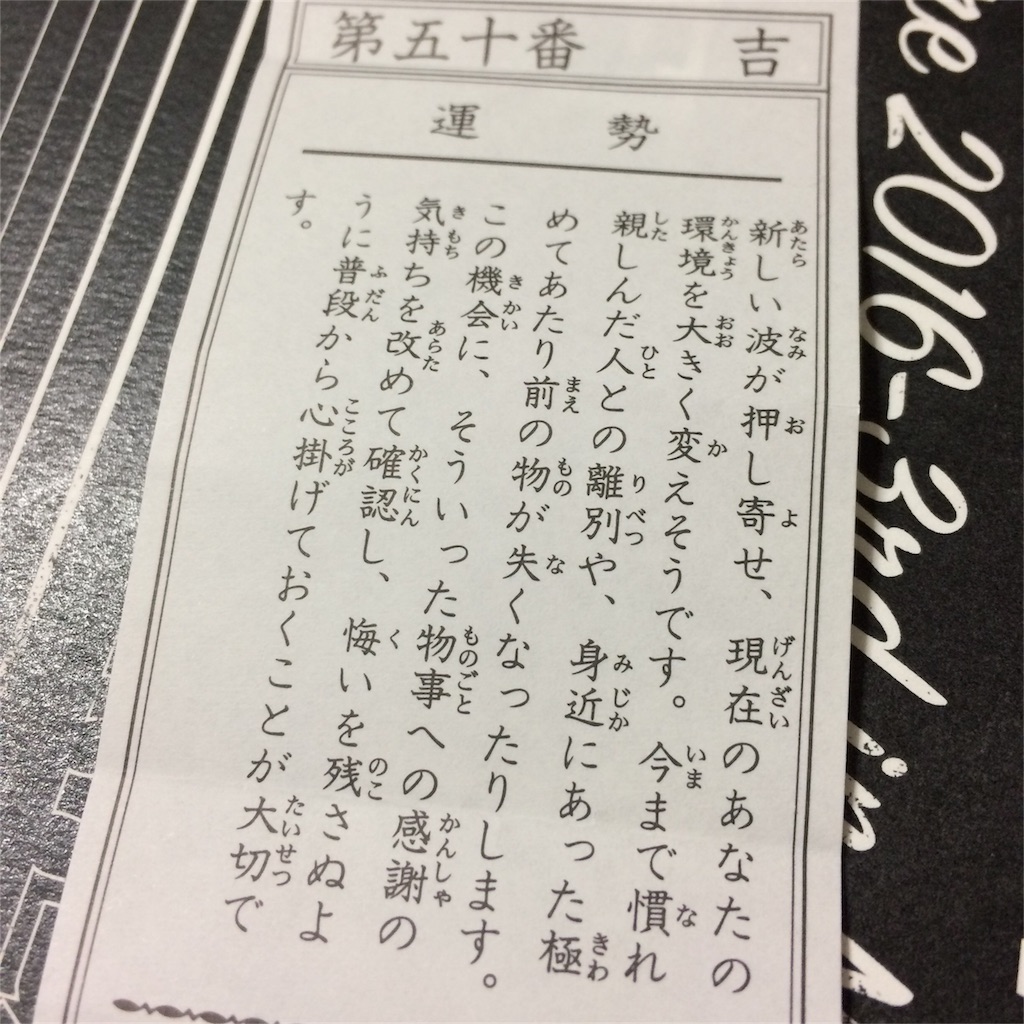 第五十番 吉
運勢
新しい波が押し寄せ、現在のあなたの
環境を大きく変えそうです。今まで慣れ
親しんだ人との離別や、身近にあった極
めてあたり前の物が失くなったりします。
この機会に、そういった物事への感謝の
気持ちを改めて確認し、悔いを残さぬよ
うに普段から心掛けておくことが大切で
す。
2016-3rd in